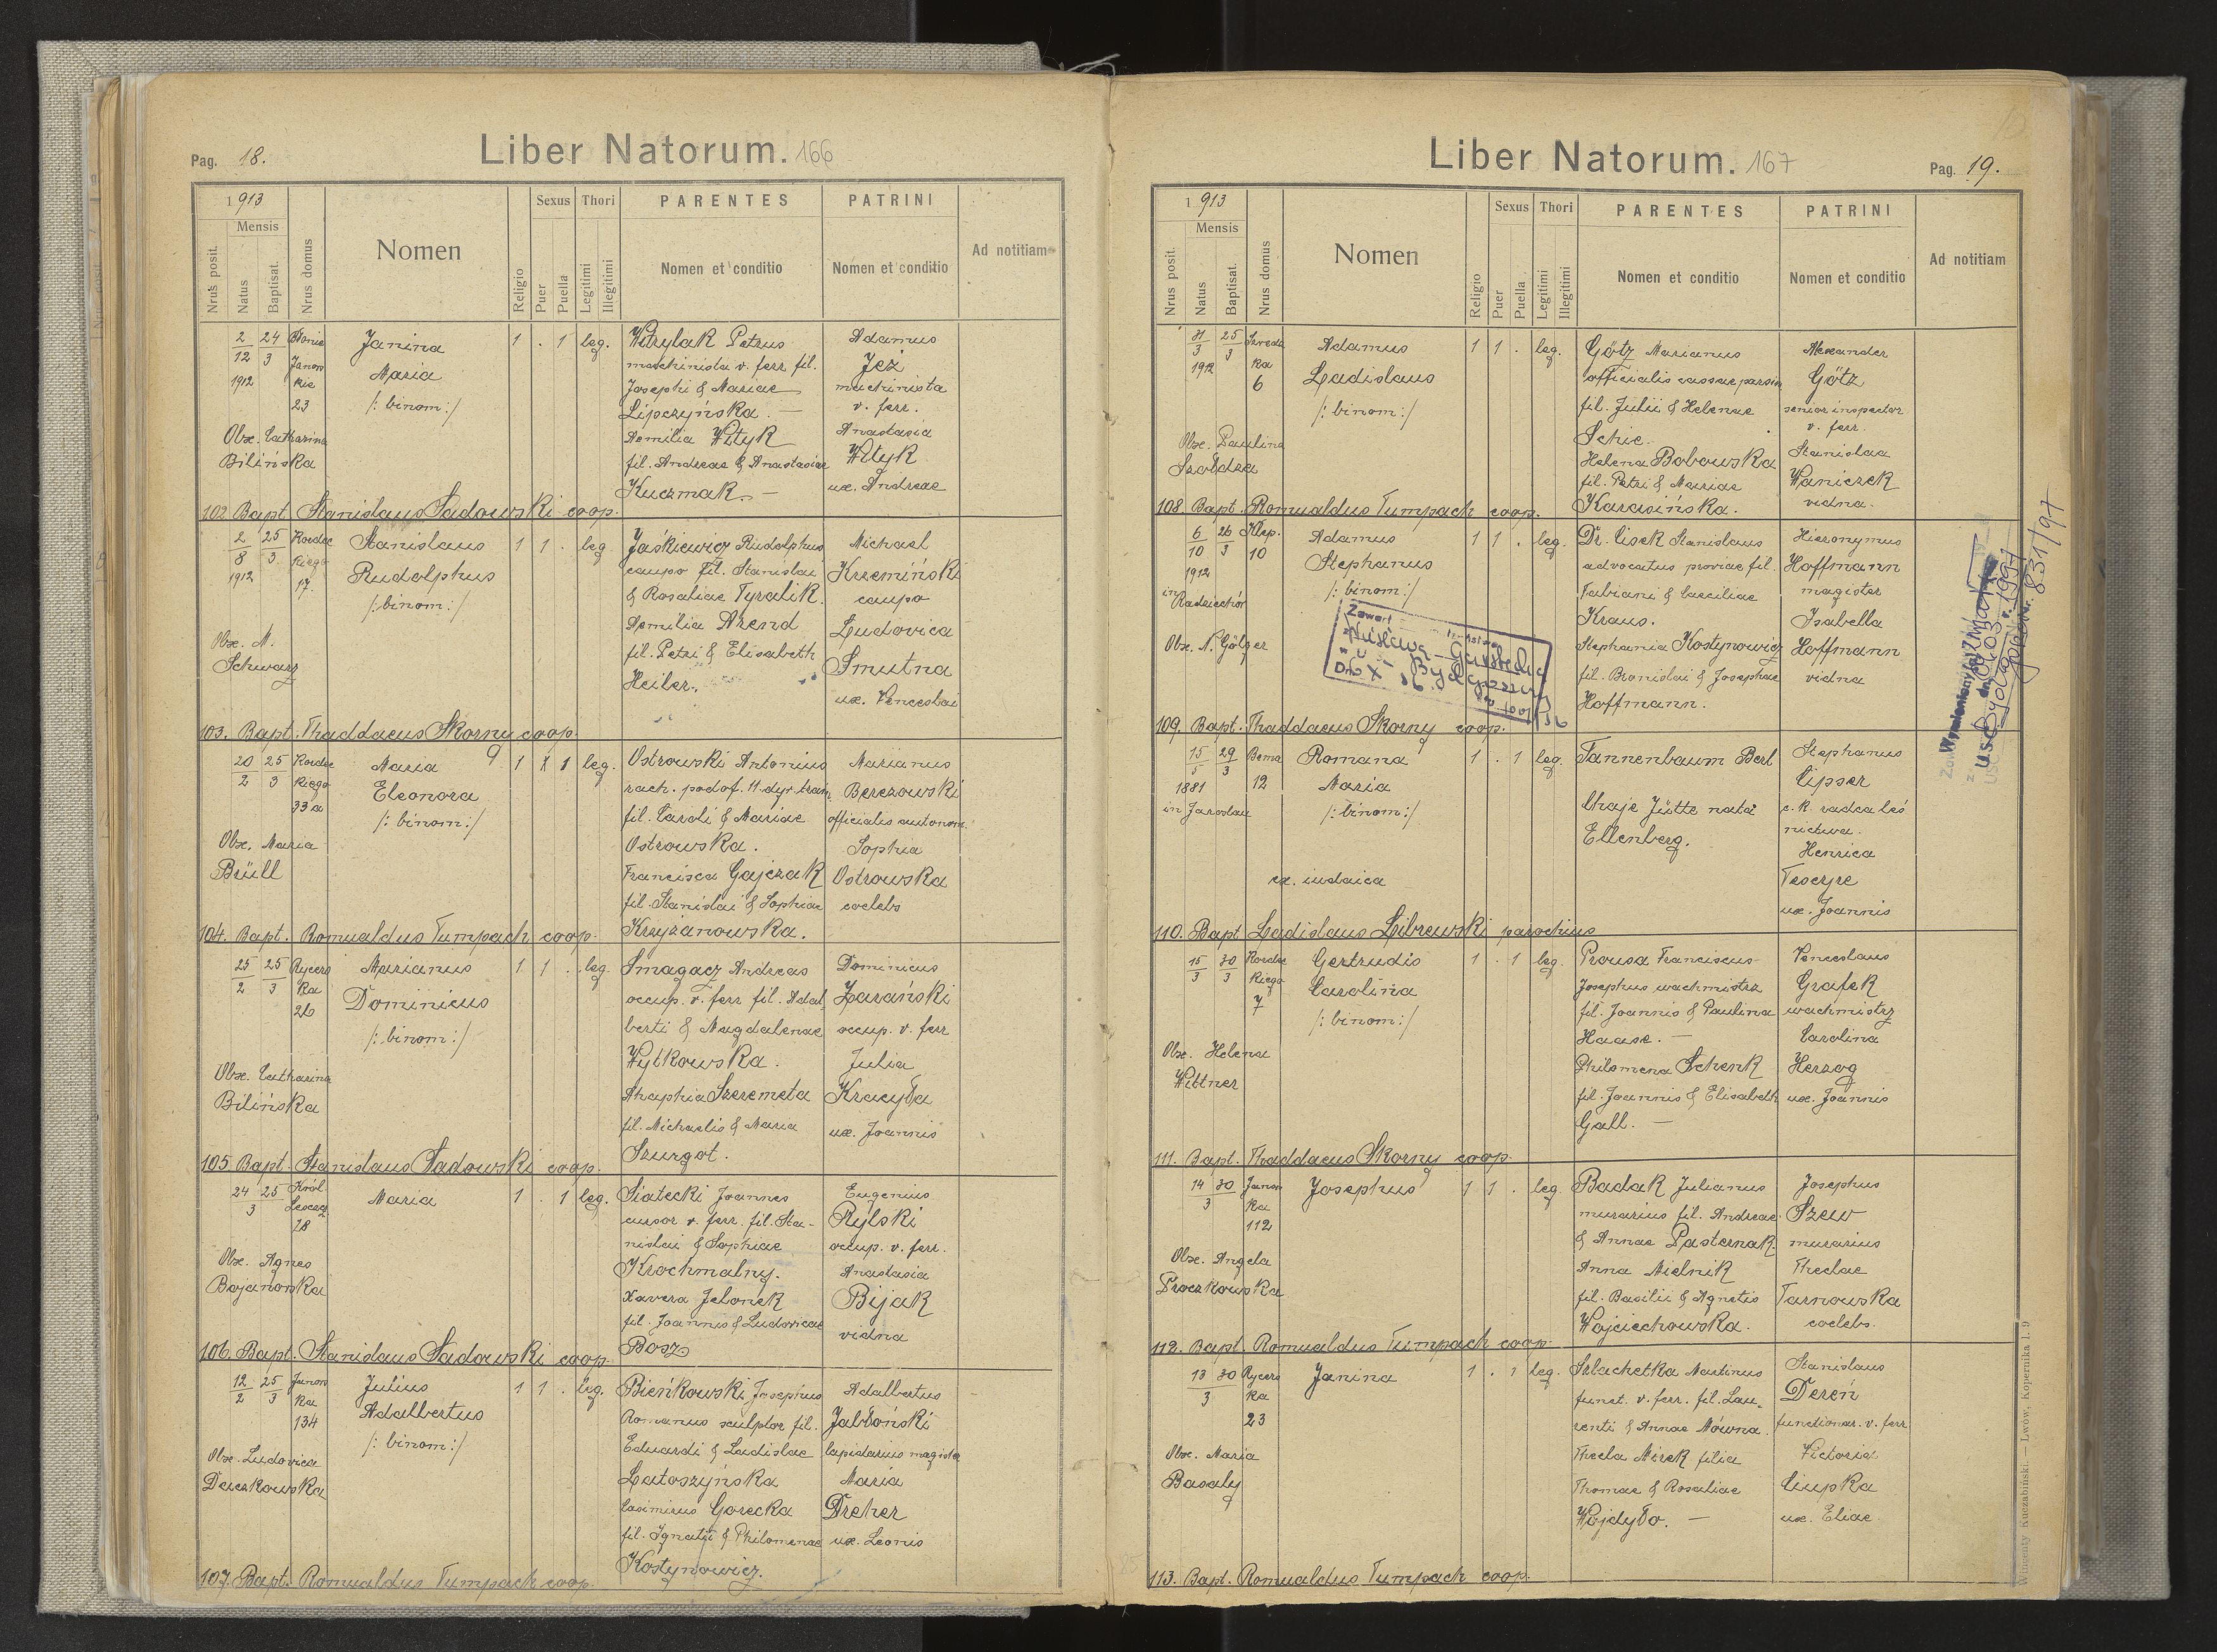 Pag. 18.
Liber Natorum. 166
1913
Mensis
Nrus posit.
Natus
Baptisat.
Nrus domus
Nomen
Religio
Sexus
Puer
Puella
Thori
Legitimi
Illegitimi
PARENTES
Nomen et conditio
PATRINI
Nomen et conditio
Ad notitiam
2 24 Błonie Janina 1 . 1 leg. Witylak Petrus Adamus
12 3 Janow machinista v. ferr fil. Jeż
1912 kie Maria Josephi & Mariae machinista
23 /: binom:/ Lipczyńska. — v. ferr.
Obx. Catharina Aemilia Wityk Anastasia
Bilińska fil. Andreae & Anastasiae Wityk
Kuczmak. — ux. Andreae
102 Bapt. Stanislaus Sadowski coop.
2 25 Kordec Stanislaus 1 1 . leg. Jaśkiewicz Rudolphus Michael
8 3 kiego Rudolphus caupo fil. Stanislai Krzemiński
1912 17. /: binom:/ & Rosaliae Tyralik. caupo
Obx. M. Aemilia Arend Ludovica
Schwarz fil. Petri & Elisabeth Smutna
Heiler. ux. Venceslai
103. Bapt. Thaddaeus Skorny coop.
20 25 Kordec Maria 1 1 leg. Ostrowski Antonius Marianus
2 3 kiego Eleonora rach. podof. 11. dyv. train. Berezowski
33 a /: binom:/ fil. Caroli & Mariae officialis autonom.
Obx. Maria Ostrowska. Sophia
Brüll Francisca Gajczak Ostrowska
fil. Stanislai & Sophiae coelebs
104. Bapt. Romualdus Tumpach coop. Krzyżanowska.
25 25 Rycers Marianus 1 1 . leg. Smagacz Andreas Dominicus
2 3 ka Dominicus occup. v. ferr fil. Adal Żarański
26 /: binom:/ berti & Magdalenae occup. v. ferr
Obx. Catharina Wytkowska. Julia
Bilińska Szeremeta
fil. Michaelis & Maria ux. Joannis
Szurgot.
105 Bapt. Stanislaus Sadowski coop.
24 25 Król. Maria 1 . 1 leg. Siatecki Joannes Eugenius
3 Leszcz. cursor v. ferr. fil. Sta- Rylski
28 nislai & Sophiae occup. v. ferr.
Obx. Agnes Krochmalny. Anastasia
Bojanowska Xavera Jelonek Bijak
fil. Joannis & Ludovicae vidna
Bosz
106. Bapt. Stanislaus Sadowski coop.
12 25 Janow Julius 1 1 . leg. Bieńkowski Josephus Adalbertus
2 3 ka Adalbertus Romanus sculptor fil. Jabłoński
134 /: binom:/ Eduardi & Ladislae lapidarius magister
Obx. Ludovica Łatoszyńska Maria
Daczkowska Casimirus Gorecka Dreher
fil. Ignatii & Philomenae ux. Leonis
Kostynowicz.
107. Bapt. Romualdus Tumpach coop.
Liber Natorum. 167
Pag. 19.
1913
Mensis
Nrus posit.
Natus
Baptisat.
Nrus domus
Nomen
Religio
Sexus
Puer
Puella
Thori
Legitimi
Illegitimi
PARENTES
Nomen et conditio
PATRINI
Nomen et conditio
Ad notitiam
31 25 Szweda Adamus 1 1 . leg. Götz Marianus Alexander
3 3 ka Ladislaus officialis cassae parsim Götz
1912 6 /: binom:/ fil. Julii & Helenae senior inspector
Schic. v. ferr.
Obx. Paulina Helena Bobowska Stanislaa
Szołdza fil. Petri & Mariae Waniczek
Karasińska. vidna.
108 Bapt. Romualdus Tumpach coop.
6 26 Klep. Adamus 1 1 . leg. Dr. Lisek Stanislaus Hieronymus
10 3 10 Stephanus advocatus proviae fil. Hoffmann
1912 /: binom:/ Fabiani & Caeciliae magister
in Radziechów Kraus. Isabella
Obx. N. Gölzer Stephania Kostynowicz Hoffmann
fil. Bronislai & Josephae vidna
Hoffmann.
Zawarł
USC Bydgoszcz
831/97
109. Bapt. Thaddaeus Skorny coop.
15 29 Bema Romana 1 . 1 leg. Tannenbaum Berl Stephanus
5 3 12 Maria Lipser
1881 /: binom:/ Chaje Jütte nata c. k. radca leś
in Jaroslau Ellenberg. nictwa.
Henrica
ex. iudaica Teserpe
ux. Joannis
110. Bapt Ladislaus Librewski parochius
15 30 Kordec Gertrudis 1 . 1 leg. Prousa Franciscus Venceslaus
3 3 kiego Carolina Josephus wachmistrz Grafek
7 /: binom:/ fil. Joannis & Paulina wachmistrz
Obx. Helena Haase. — Carolina
Wittner Philomena Schenk Herzog
fil. Joannis & Elisabeth ux. Joannis
Gall. —
111. Bapt. Thaddaeus Skorny coop.
14 30 Janow Josephus 1 1 . leg. Badak Julianus Josephus
3 ka murarius fil. Andreae Szew
112 & Annae Pasternak. murarius
Obx. Angela Anna Mielnik Theclae
Proczkowska fil. Basilii & Agnetis Tarnowska
Wojciechowska. coelebs.
112. Bapt. Romualdus Tumpach coop.
13 30 Rycers Janina 1 . 1 leg. Szlachetka Martinus Stanislaus
3 ka funct. v. ferr. fil. Lau- Dereń
23 renti & Annae Mówna functionar. v. ferr
Obx. Maria Thecla Mirek filia Victoria
Basaly Thomae & Rosaliae Ciupka
Wojdyło. — ux. Eliae.
113. Bapt. Romualdus Tumpach coop.
Wincenty Kuczabiński. — Lwów, Kopernika l. 9